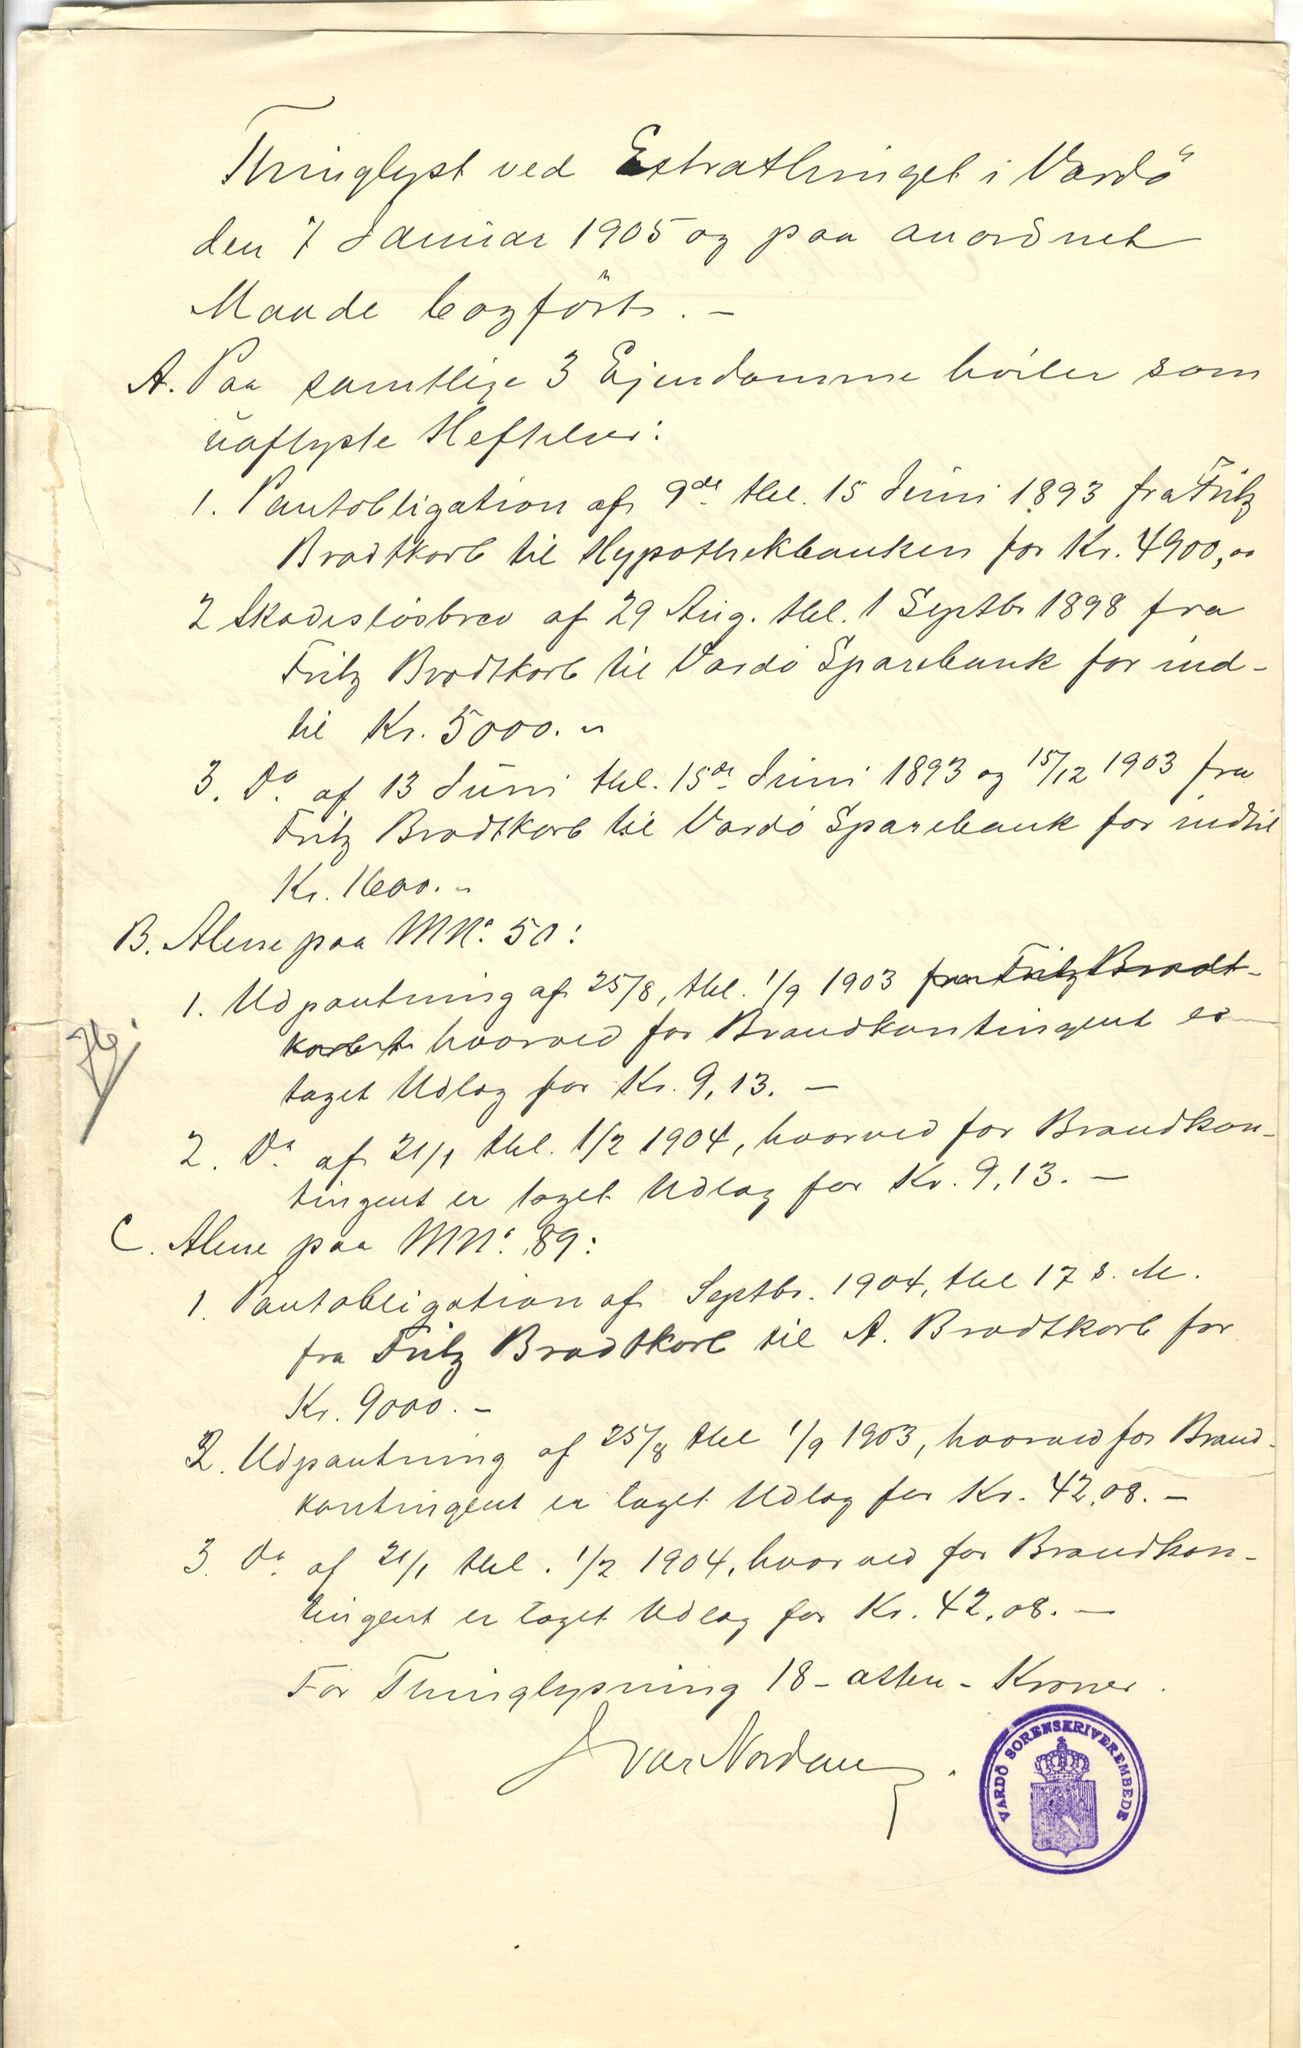 Thinglyst ved Extrathinget i Vardö
den 7 Januar 1905 og paa anordnet
Maade bogført. –
A. Paa samtlige 3 Ejendomme hviler som
uaflyste Heftelser:
1. Pantobligation af 9de thl. 15 Juni 1893 fra Fritz
Brodtkorb til Hypothekbanken for Kr. 4900,00
2 Skadesløsbrev af 29 Aug. thl. 1 Septbr 1898 fra
Fritz Brodtkorb til Vardö Sparebank for ind-
til Kr. 5000. "
3. Do. af 13 Juni thl. 15de Juni 1893 og 15/12 1903 fra
Fritz Brodtkorb til Vardö Sparebank for indtil
Kr. 1600. "
B. Alene paa MNo. 50:
1. Udpantning af 25/8, thl. 1/9 1903 fra Fritz Brodt-
korb t hvorved for Brandkontingent er
taget Udlæg for Kr. 9,13. –
2. Do. af 21/1 thl. 1/2 1904, hvorved for Brandkon-
tingent er taget Udlæg for Kr. 9,13. –
C. Alene paa MNo. 89:
1. Pantobligation af Septbr. 1904, thl 17 s. M.
fra Fritz Brodtkorb til A. Brodtkorb for
Kr. 9000. –
2. Udpantning af 25/8 thl 1/9 1903, hvorved for Brand-
kontingent er taget Udlæg for Kr. 42,08. –
3. Do. af 21/1 thl. 1/2 1904, hvorved for Brandkon-
tingent er taget Udlæg for Kr. 42,08. –
For Thinglysning 18 – atten – Kroner.
Ivar Nordan
VARDÖ SORENSKRIVEREMBEDE